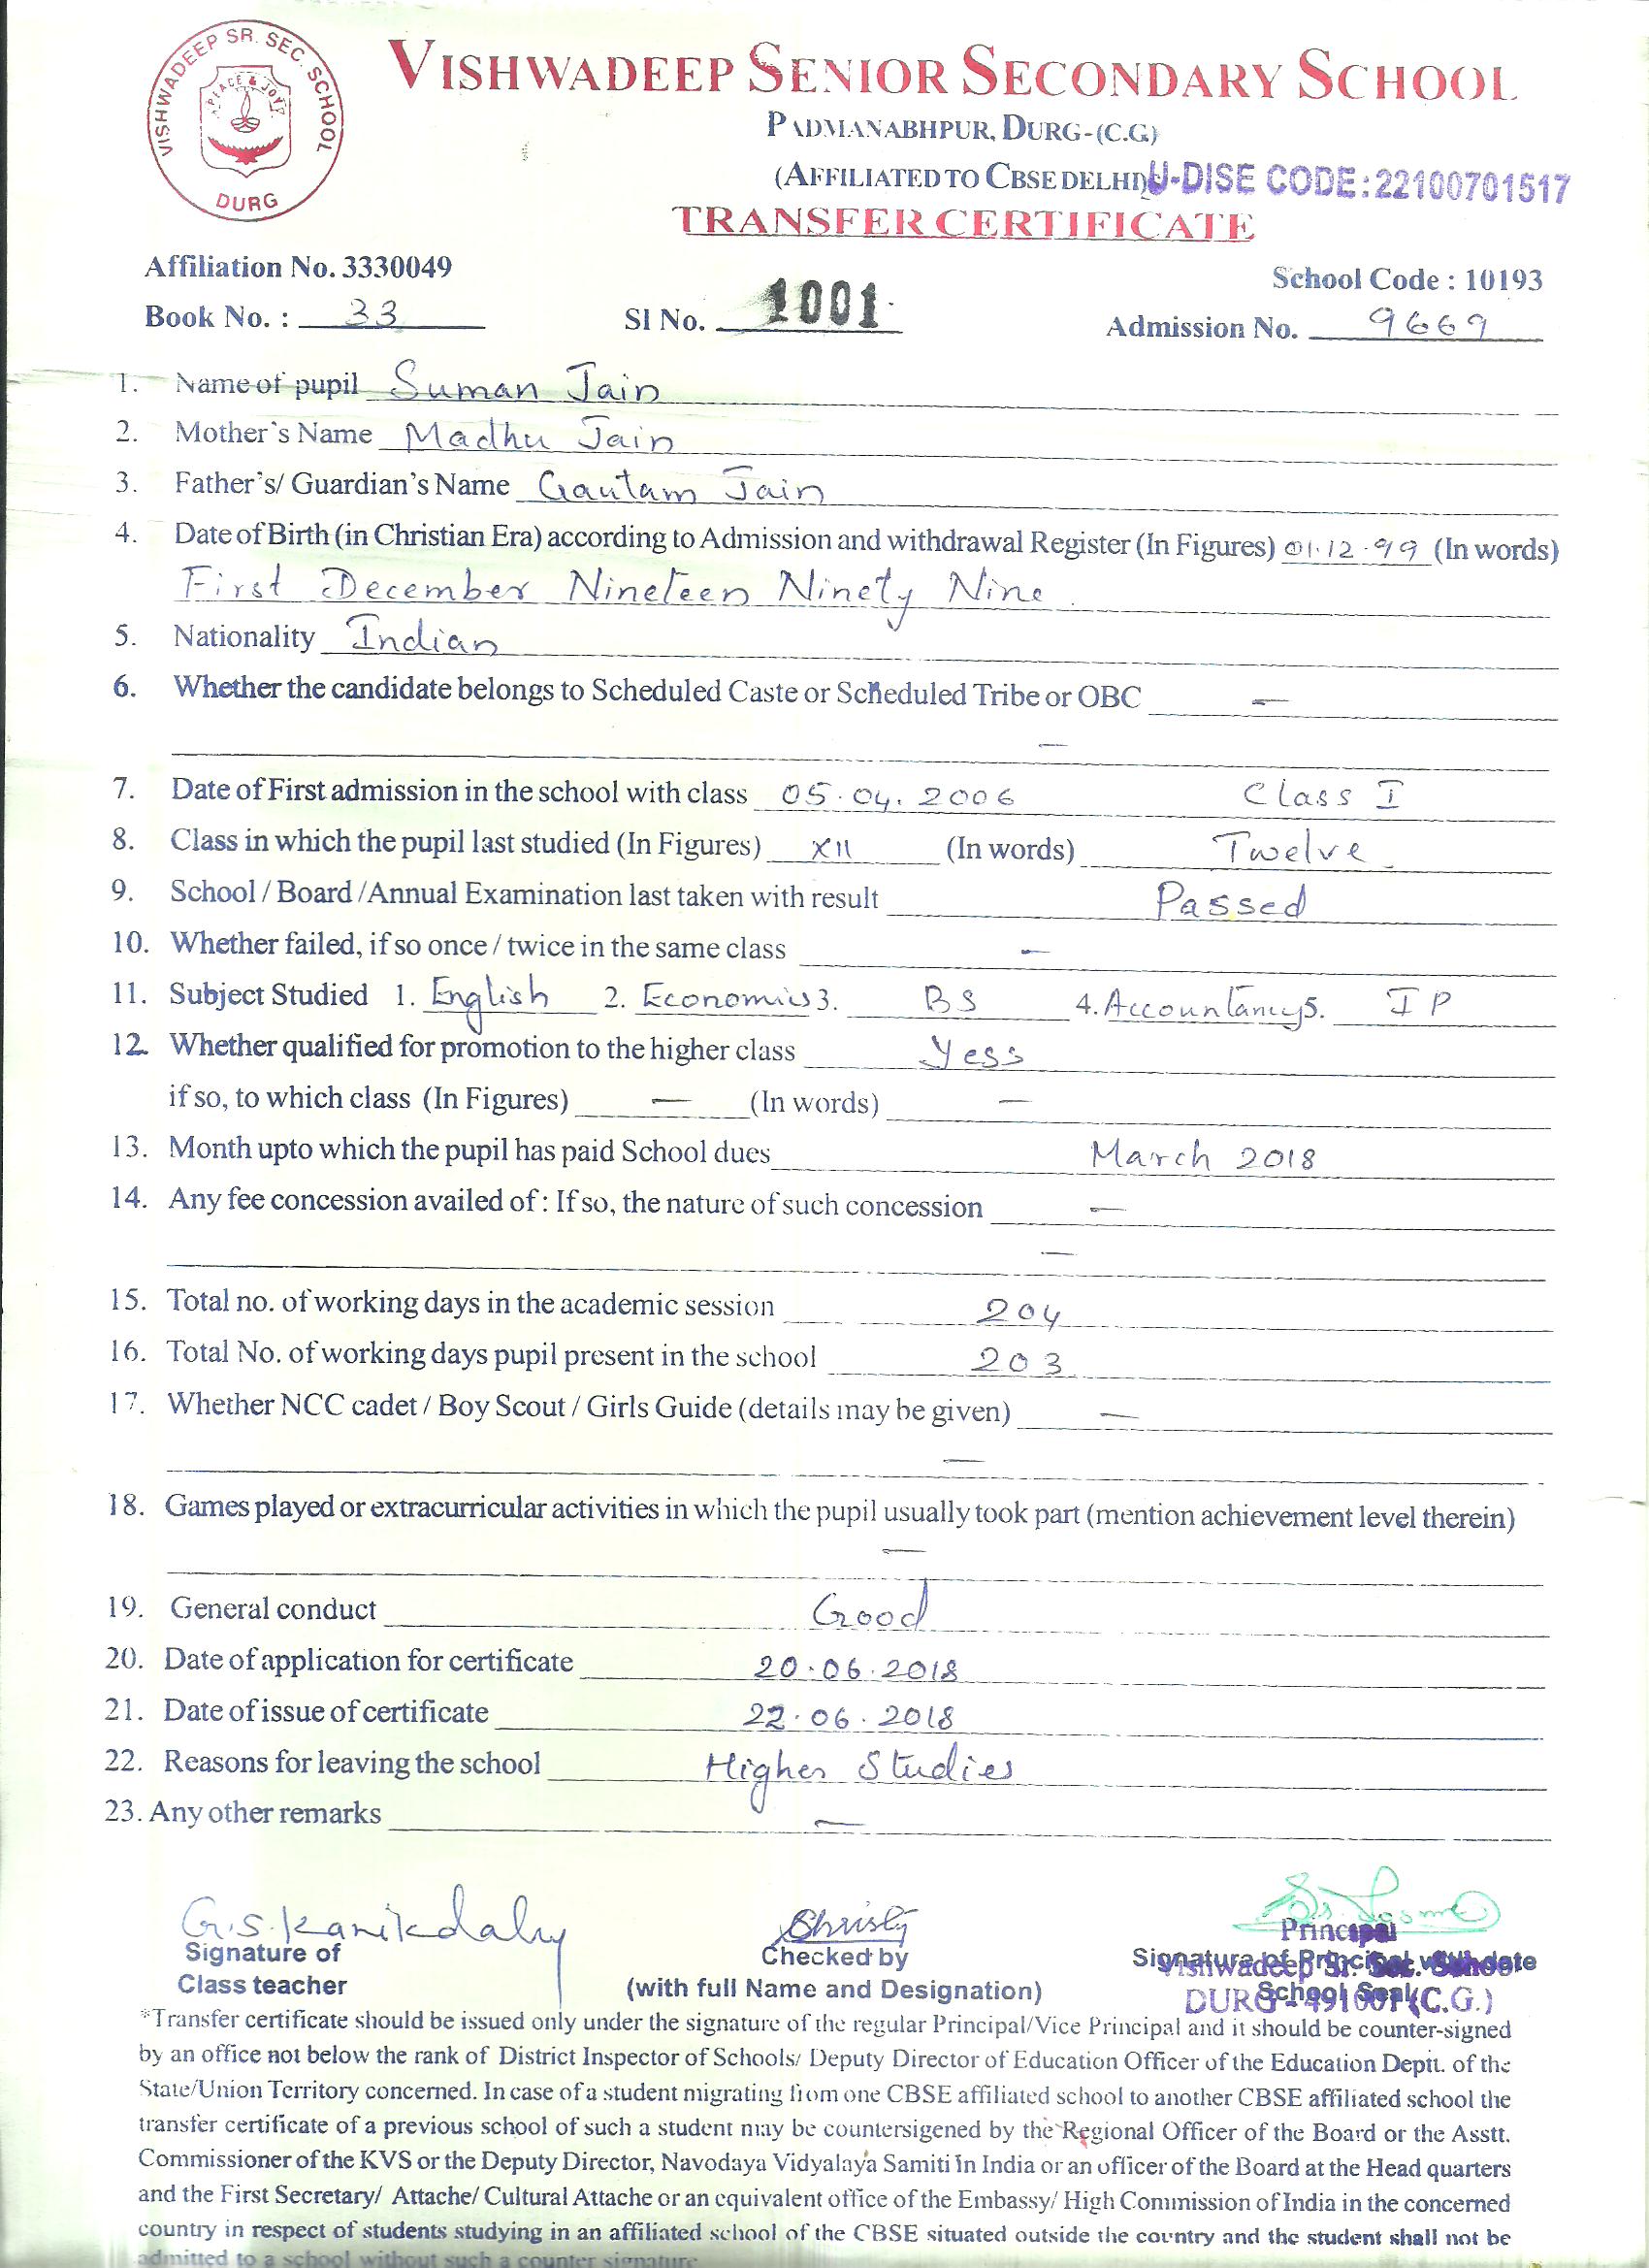 VISHWADEEP SR. SEC. SCHOOL
PEACE & JOY
DURG
VISHWADEEP SENIOR SECONDARY SCHOOL
PADMANABHPUR, DURG-(C.G.)
(AFFILIATED TO CBSE DELHI) U-DISE CODE:22100701517
TRANSFER CERTIFICATE
Affiliation No. 3330049
School Code : 10193
Book No. : 33 Sl No. 1001 Admission No. 9669
1. Name of pupil Suman Jain
2. Mother's Name Madhu Jain
3. Father's/ Guardian's Name Gautam Jain
4. Date of Birth (in Christian Era) according to Admission and withdrawal Register (In Figures) 01.12.99 (In words)
First December Nineteen Ninety Nine
5. Nationality Indian
6. Whether the candidate belongs to Scheduled Caste or Scheduled Tribe or OBC —
—
7. Date of First admission in the school with class 05.04.2006 Class I
8. Class in which the pupil last studied (In Figures) XII (In words) Twelve
9. School / Board /Annual Examination last taken with result Passed
10. Whether failed, if so once / twice in the same class —
11. Subject Studied 1. English 2. Economics 3. BS 4. Accountancy 5. IP
12. Whether qualified for promotion to the higher class Yess
if so, to which class (In Figures) — (In words) —
13. Month upto which the pupil has paid School dues March 2018
14. Any fee concession availed of : If so, the nature of such concession —
—
15. Total no. of working days in the academic session 204
16. Total No. of working days pupil present in the school 203
17. Whether NCC cadet / Boy Scout / Girls Guide (details may be given) —
—
18. Games played or extracurricular activities in which the pupil usually took part (mention achievement level therein)
—
19. General conduct Good
20. Date of application for certificate 20.06.2018
21. Date of issue of certificate 22.06.2018
22. Reasons for leaving the school Higher Studies
23. Any other remarks —
Principal
Signature of Checked by Signature of Principal with date
Vishwadeep Sr. Sec. School
Class teacher (with full Name and Designation) School Seal
DURG - 491001 (C.G.)
*Transfer certificate should be issued only under the signature of the regular Principal/Vice Principal and it should be counter-signed
by an office not below the rank of District Inspector of Schools/ Deputy Director of Education Officer of the Education Deptt. of the
State/Union Territory concerned. In case of a student migrating from one CBSE affiliated school to another CBSE affiliated school the
transfer certificate of a previous school of such a student may be countersigned by the Regional Officer of the Board or the Asstt.
Commissioner of the KVS or the Deputy Director, Navodaya Vidyalaya Samiti in India or an officer of the Board at the Head quarters
and the First Secretary/ Attache/ Cultural Attache or an equivalent office of the Embassy/ High Commission of India in the concerned
country in respect of students studying in an affiliated school of the CBSE situated outside the country and the student shall not be
admitted to a school without such a counter signature